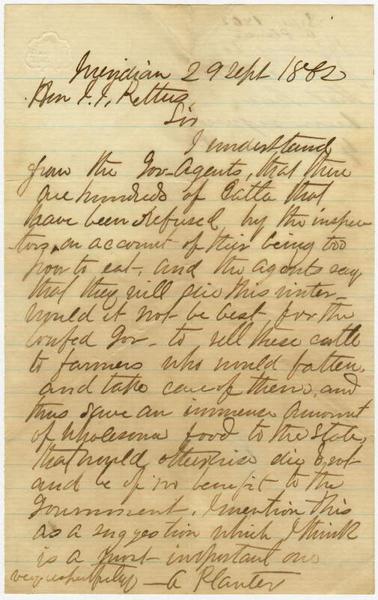 Meridian 29 Sept 1862
Hon J. J. Pettus
Sir
I understand
from the Gov Agents, that there
are hundreds of Cattle that
have been refused, by the inspec
tors, on account of their being too
poor to eat, and the agents say
that they will die this winter
would it not be best, for the
Confed Gov- to sell these cattle
to farmers who would fatten
and take care of them, and
thus save an immense amount
of wholesome food to the State,
that would otherwise die & rot
and be of no benefit to the
Government. I mention this
as a suggestion which I think
is a most important one
very respectfully - A Planter